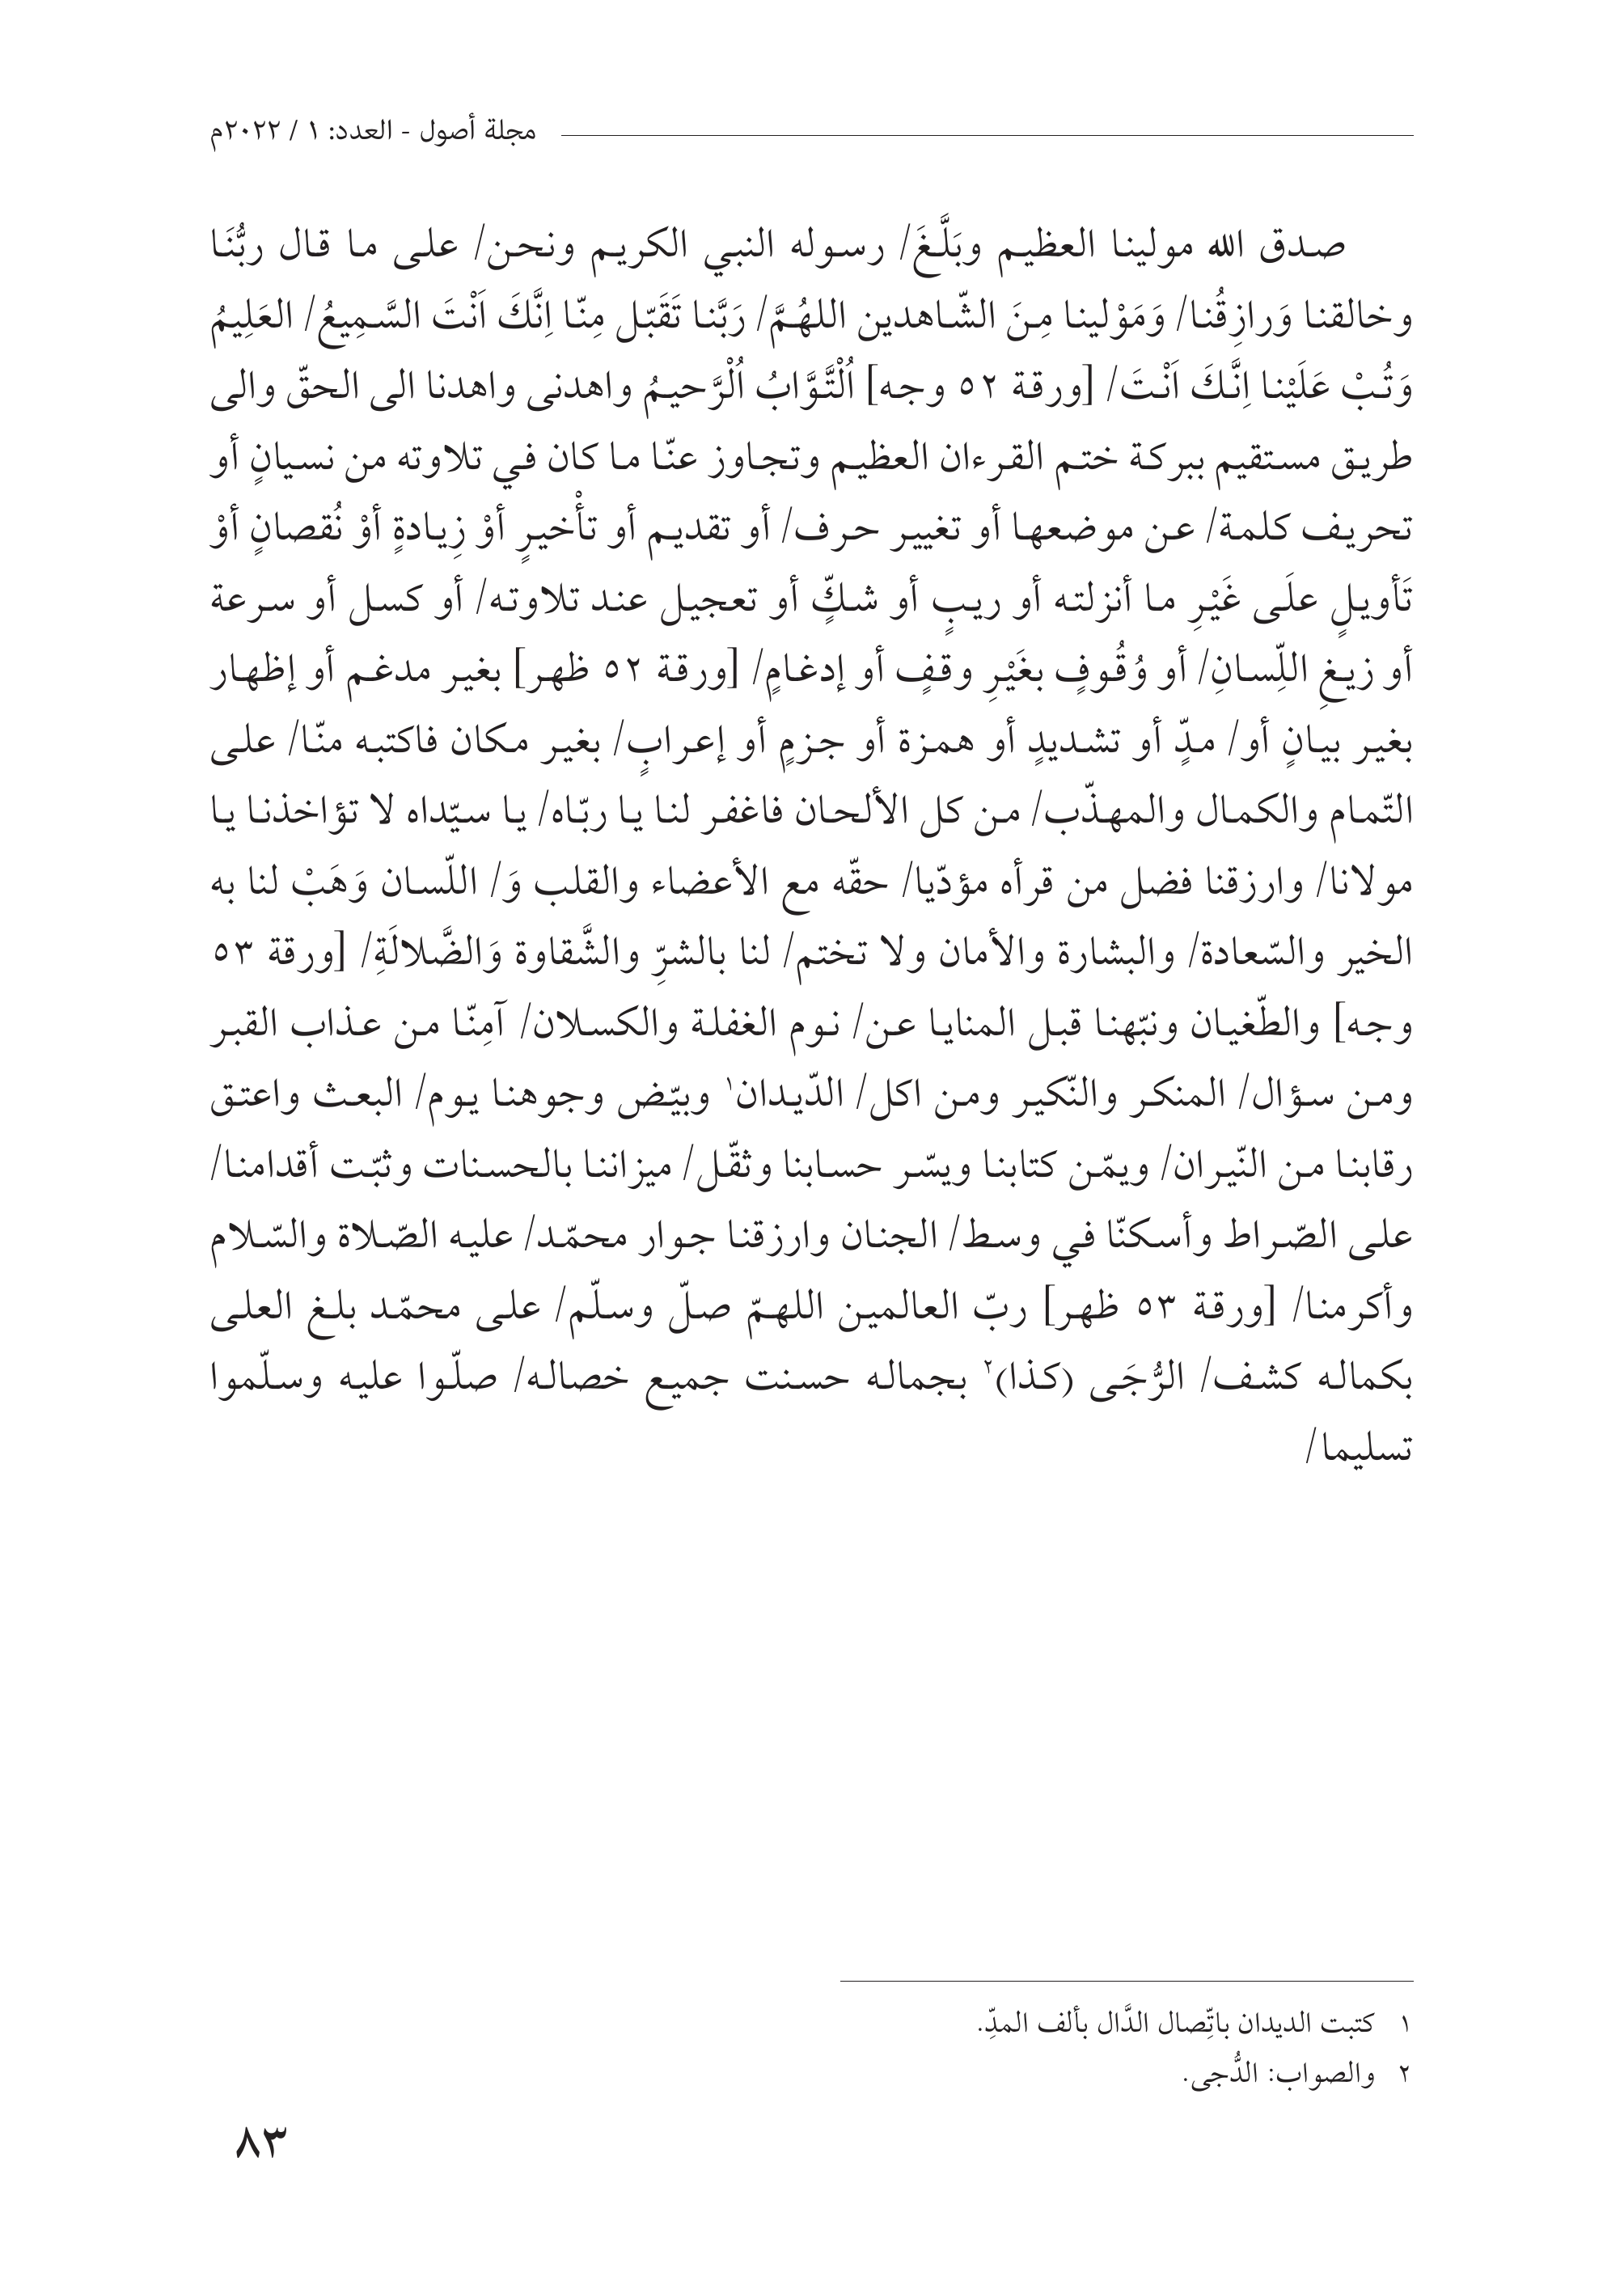 مجلة أصول - العدد: ١ / ٢٠٢٢م
صدق الله مولينا العظيم وبَلَّغَ/ رسوله النبي الكريم ونحن/ على ما قال ربُّنَا
وخالقنا وَرازِقُنا/ وَمَوْلينا مِنَ الشّاهدين اللهُمَّ/ رَبَّنا تَقَبّل مِنّا اِنَّكَ اَنْتَ السَّمِيعُ/ العَلِيمُ
وَتُبْ عَلَيْنا اِنَّكَ اَنْتَ/ [ورقة ٥٢ وجه] اُلْتَّوَّابُ اُلْرَّحيمُ واهدنى واهدنا الى الحقّ والى
طريق مستقيم ببركة ختم القرءان العظيم وتجاوز عنّا ما كان في تلاوته من نسيانٍ أو
تحريف كلمة/ عن موضعها أو تغيير حرف/ أو تقديم أو تأْخيرٍ أوْ زِيادةٍ أوْ نُقصانٍ أوْ
تَأويلٍ علَى غَيْرِ ما أنزلته أو ريبٍ أو شكٍّ أو تعجيل عند تلاوته/ أو كسل أو سرعة
أو زيغِ اللِّسانِ/ أو وُقُوفٍ بغَيْرِ وقفٍ أو إدغامٍ/ [ورقة ٥٢ ظهر] بغير مدغم أو إظهار
بغير بيانٍ أو/ مدٍّ أو تشديدٍ أو همزة أو جزمٍ أو إعرابٍ/ بغير مكان فاكتبه منّا/ على
التّمام والكمال والمهذّب/ من كل الألحان فاغفر لنا يا ربّاه/ يا سيّداه لا تؤاخذنا يا
مولانا/ وارزقنا فضل من قرأه مؤدّيا/ حقّه مع الأعضاء والقلب وَ/ اللّسان وَهَبْ لنا به
الخير والسّعادة/ والبشارة والأمان ولا تختم/ لنا بالشرِّ والشَّقاوة وَالضَّلالَةِ/ [ورقة ٥٣
وجه] والطّغيان ونبّهنا قبل المنايا عن/ نوم الغفلة والكسلان/ آمِنّا من عذاب القبر
ومن سؤال/ المنكر والنّكير ومن اكل/ الدّيدان١ وبيّض وجوهنا يوم/ البعث واعتق
رقابنا من النّيران/ ويمّن كتابنا ويسّر حسابنا وثقّل/ ميزاننا بالحسنات وثبّت أقدامنا/
على الصّراط وأسكنّا في وسط/ الجنان وارزقنا جوار محمّد/ عليه الصّلاة والسّلام
وأكرمنا/ [ورقة ٥٣ ظهر] ربّ العالمين اللهمّ صلّ وسلّم/ على محمّد بلغ العلى
بكماله كشف/ الرُّجَى (كذا)٢ بجماله حسنت جميع خصاله/ صلّوا عليه وسلّموا
تسليما/
١ كتبت الديدان باتِّصال الدَّال بألف المدِّ.
٢ والصواب: الدُّجى.
٨٣